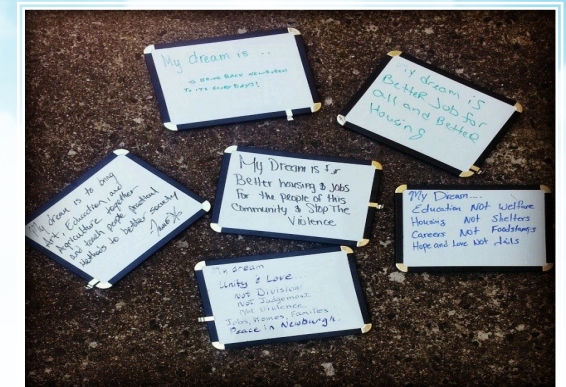 My dream is ...
to BRING BACK NEWBURGH
TO ITS GLORY DAYS!
My dream is
Better Job for
all and Better
Housing
My dream is to bring
Art, Education, and
Agriculture together
and teach people practical
methods to better society
My Dream is for
Better housing & jobs
For the people of this
Community & Stop The
Violence
My Dream....
Education Not Welfare
Housing Not Shelters
Careers Not Foodstamps
Hope and Love Not Jails
My Dream
Unity & Love...
Not Division
Not Judgement
Not Violence
Jobs, Homes, Families
Peace in Newburgh.